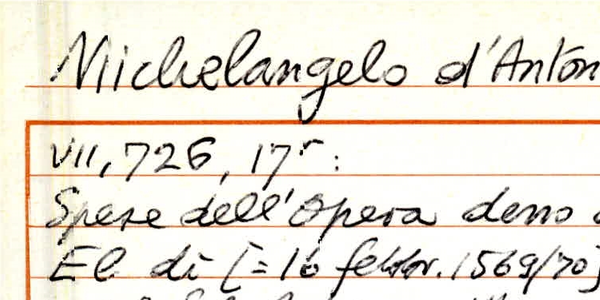 Michelangelo d'Anton
VII, 726, 17r:
Spese dell'Opera deno
El dì [= 16 febbr. 1569/70]